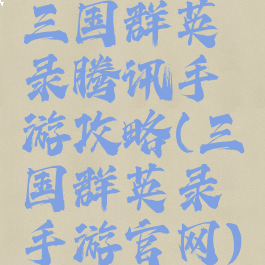 三国群英
录腾讯手
游攻略(三
国群英录
手游官网)